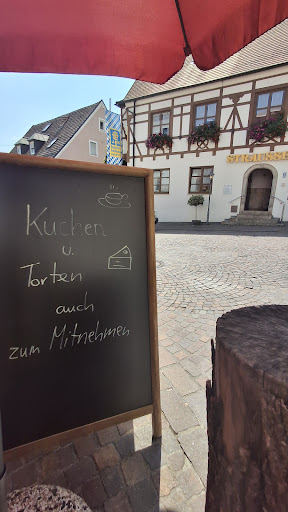 Kuchen
u.
Torten
auch
zum Mitnehmen